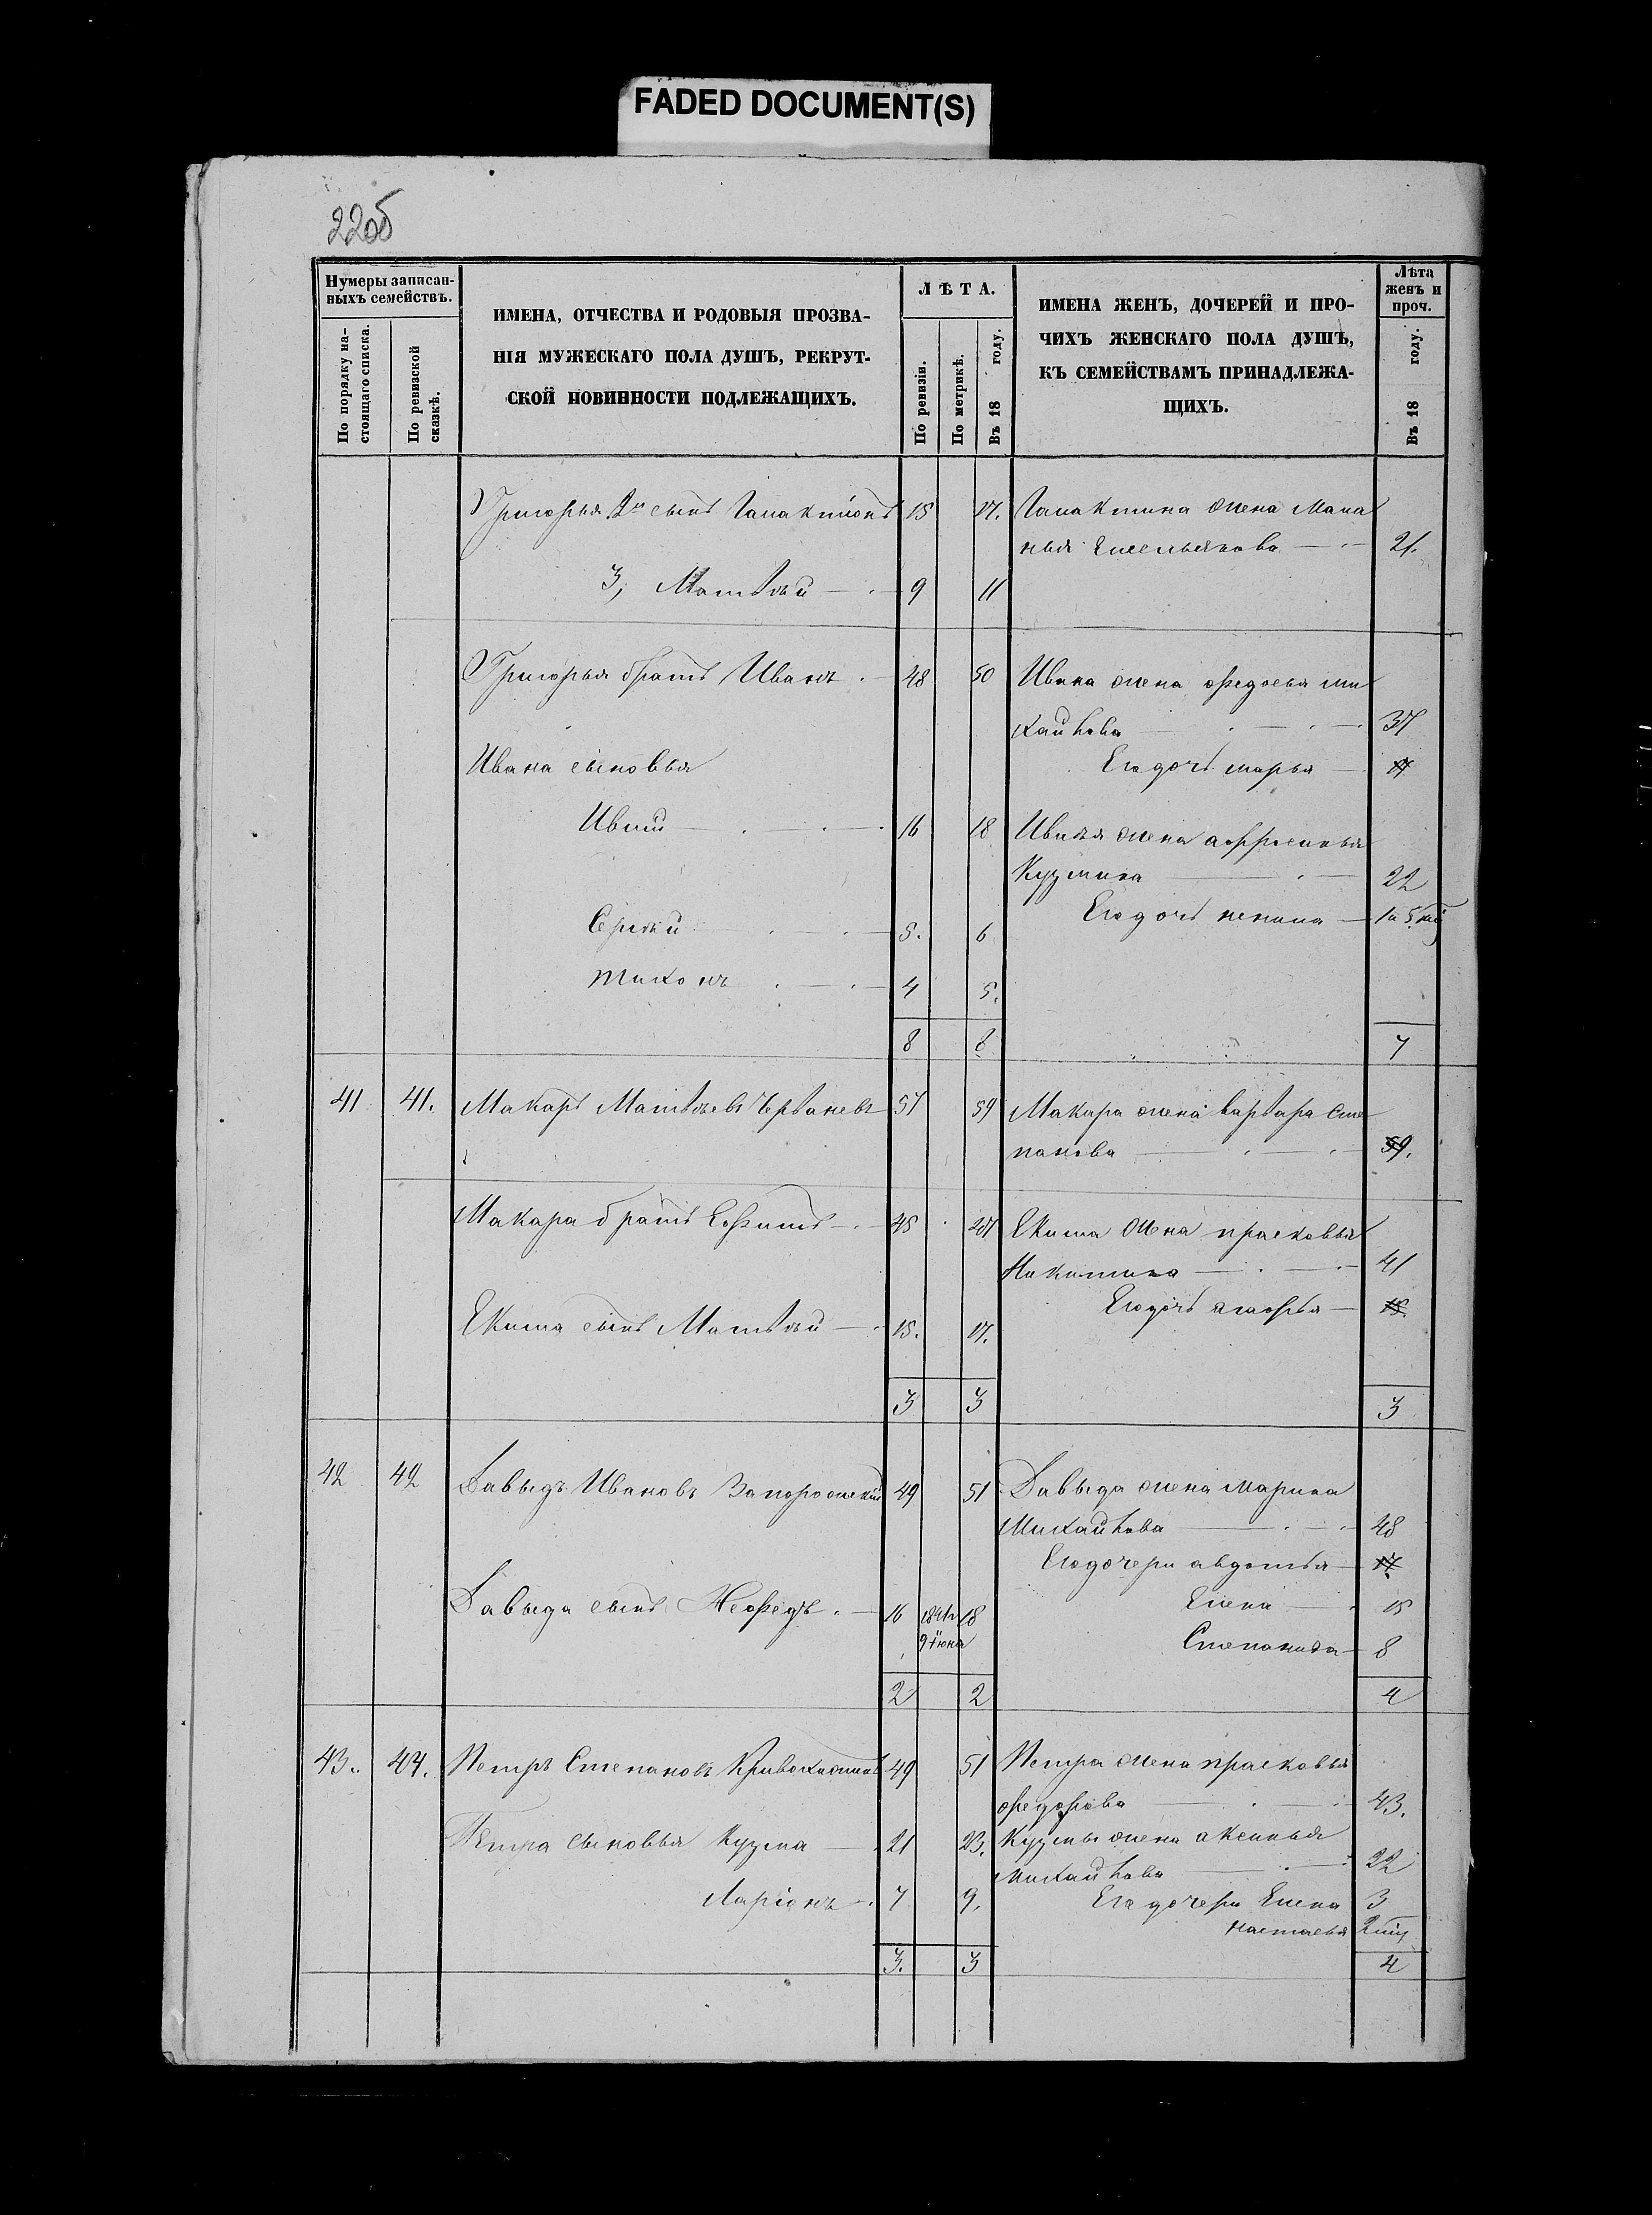 FADED DOCUMENT(S)
22об
Нумеры записан-
ныхъ семействъ.
По порядку на-
стоящаго списка.
По ревизской
сказкѣ.
ИМЕНА, ОТЧЕСТВА И РОДОВЫЯ ПРОЗВА-
НІЯ МУЖЕСКАГО ПОЛА ДУШЪ, РЕКРУТ-
СКОЙ ПОВИННОСТИ ПОДЛЕЖАЩИХЪ.
ЛѢТА.
По ревизіи.
По метрикѣ.
Въ 18 году.
ИМЕНА ЖЕНЪ, ДОЧЕРЕЙ И ПРО-
ЧИХЪ ЖЕНСКАГО ПОЛА ДУШЪ,
КЪ СЕМЕЙСТВАМЪ ПРИНАДЛЕЖА-
ЩИХЪ.
Лѣта
женъ и
проч.
Въ 18 году.
Григорья 2й сынъ Галактіонъ 15 17. Галактиона жена Мала
нья Емельянова 21.
3, Матвѣй 9 11
Григорья братъ Иванъ 48 50 Ивана жена федосья ми
хайлова 37
Ивана сыновья Его дочь марья 17
16 18 жена афросинья
Кузмина 22
Сергѣй 5. 6 Его дочь
Тихонъ 4 5.
8 8 7
41 41. Макаръ Матвѣевъ 57 59 Макара жена варвара Сте
панова 59.
Макара братъ Ефимъ 45 47 Екима жена прасковья
Никитина 41
Его дочь 15
Екима сынъ Матвѣй 15. 17.
3 3 3
42 42 Давыдъ Ивановъ Запорожский 49 51 Давыда жена Марина
Михайлова 48
Его дочери авдотья 17
Давыда сынъ Нефедъ 16 18 Елена 15
9 Іюня Степанида 8
2 2 4
43. 44. Петръ Степановъ 49 51 Петра жена прасковья
федорова 43.
Петра сыновья Кузма 21 23. Кузмы жена аксинья
Михайлова 22
Ларіонъ 7 9. Его дочери Елена 3
настасья
3. 3 4